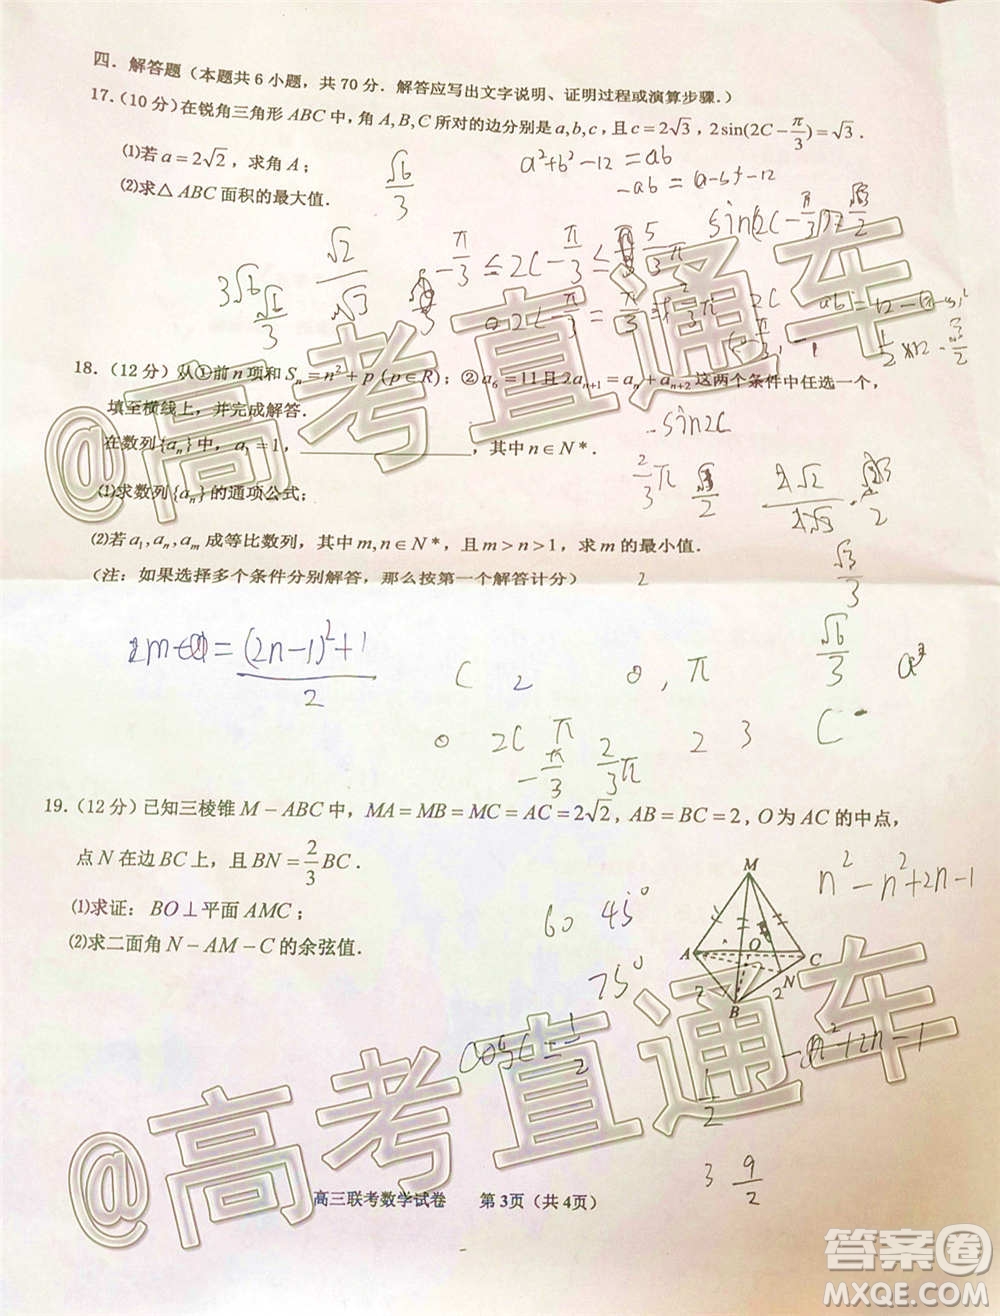 四．解答题（本题共6小题，共70分．解答应写出文字说明、证明过程或演算步骤．）
17．（10分）在锐角三角形ABC中，角A,B,C所对的边分别是a,b,c，且c=2√3，2sin(2C−π/3)=√3．
⑴若a=2√2，求角A；
⑵求△ABC面积的最大值．
√6/3
a²+b²−12=ab
−ab=(a−b)²−12
sin(2C−π/3)=√3/2
3√6
√6/3
√2/√3
−π/3≤2C−π/3≤5/3π
2C−π/3=π/3或2/3π
18．（12分）从①前n项和Sₙ=n²+p(p∈R)；②a₆=11且2aₙ₊₁=aₙ+aₙ₊₂这两个条件中任选一个，
填至横线上，并完成解答．
在数列{aₙ}中，a₁=1，＿＿＿＿＿＿，其中n∈N*．
sin2C
2/3π √3/2
⑴求数列{aₙ}的通项公式；
⑵若a₁,aₙ,aₘ成等比数列，其中m,n∈N*，且m>n>1，求m的最小值．
（注：如果选择多个条件分别解答，那么按第一个解答计分）
2
√3/3
=(2n−1)²+1/2
C 2 0,π
√6/3
a²
0 2C π
−π/3 2/3π
2 3 C
19．（12分）已知三棱锥M−ABC中，MA=MB=MC=AC=2√2，AB=BC=2，O为AC的中点，
点N在边BC上，且BN=2/3BC．
⑴求证：BO⊥平面AMC；
⑵求二面角N−AM−C的余弦值．
60 45°
75°
cosC=1/2
n²−n²+2n−1
M
A
O
C
N
B
2
2
−n²+2n−1
1/2
3 9/2
@高考直通车
@高考直通车
高三联考数学试卷 第3页（共4页）
答案圈
MXQE.COM